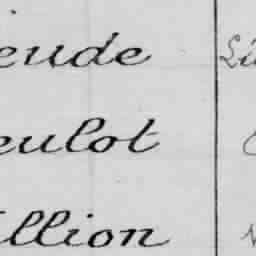 eude
eulot
llion